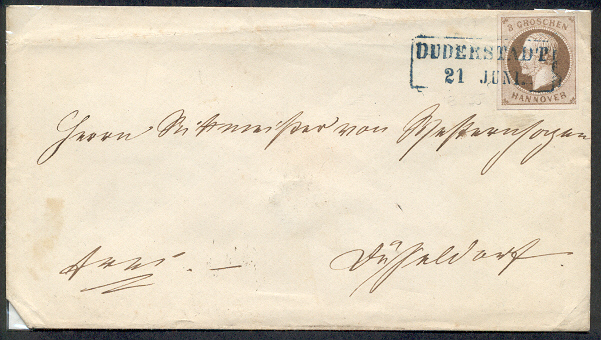 3 GROSCHEN
HANNOVER
DUDERSTADT
21 JUNI
Herrn Rittmeister von Westernhagen
frei.
Düsseldorf.